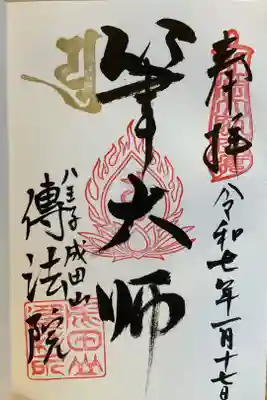 奉拝
令和七年一月十七日
筆大師
八王子成田山
傳法院